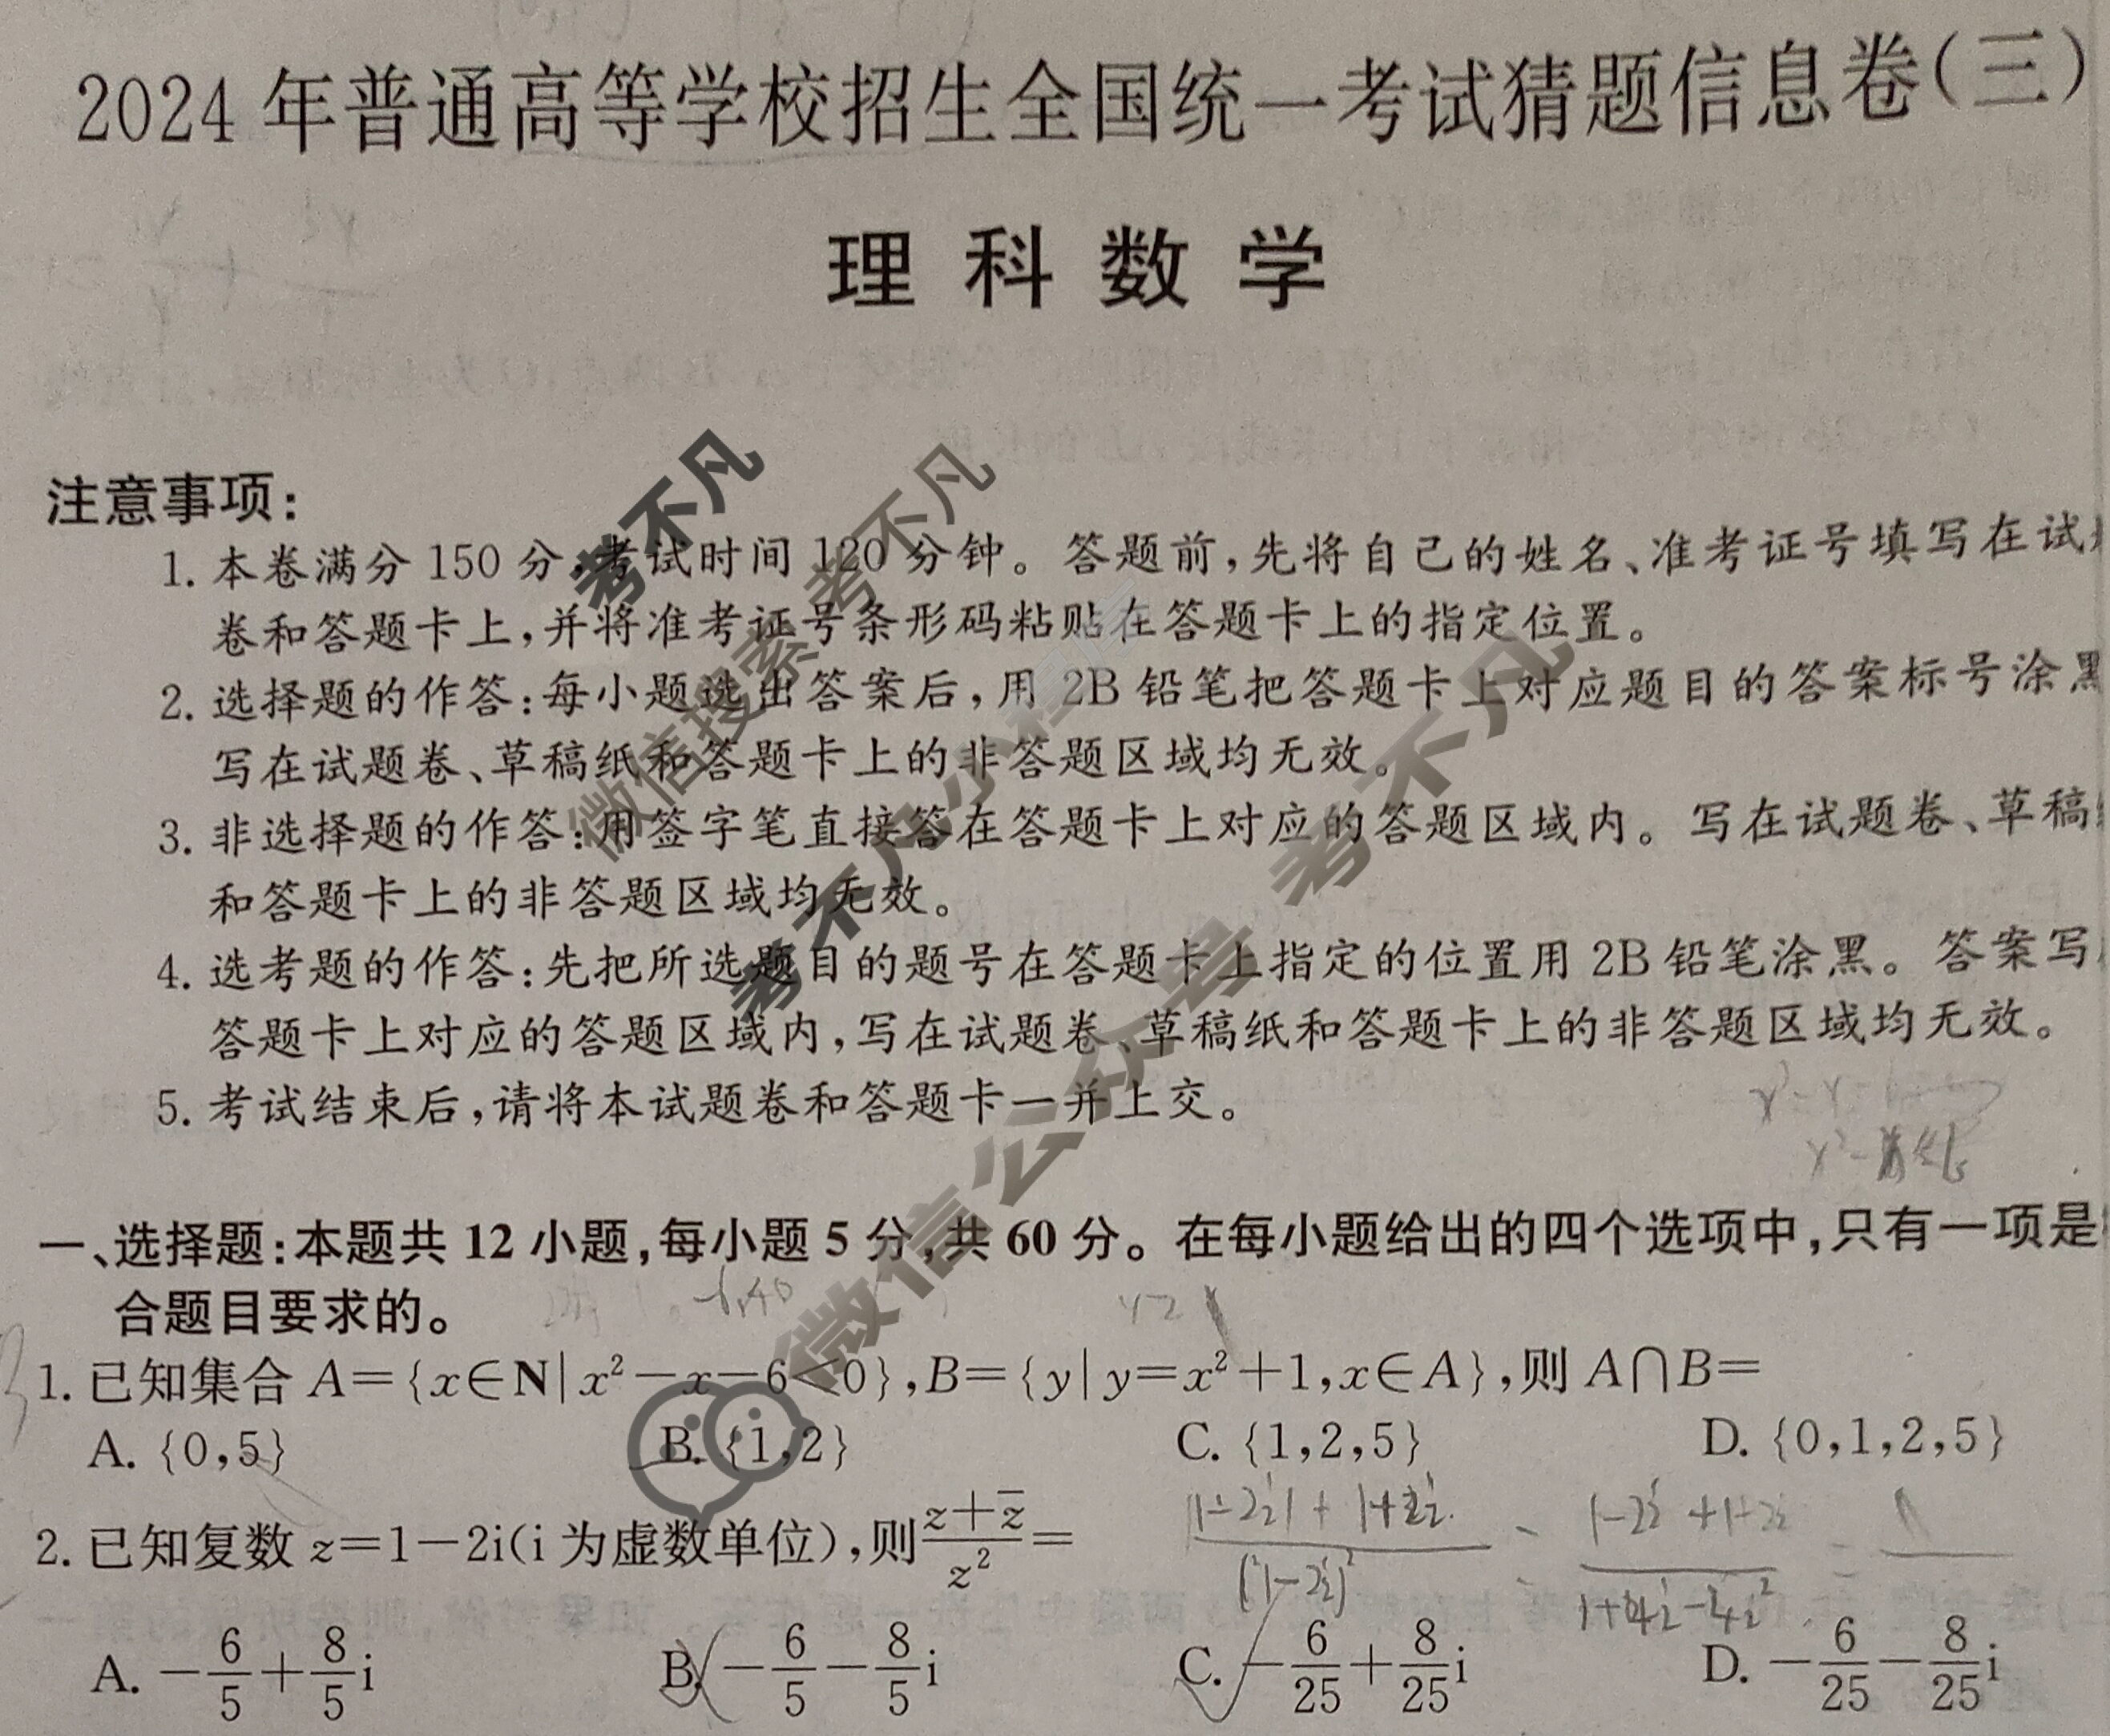 2024年普通高等学校招生全国统一考试猜题信息卷(三)
理科数学
注意事项:
1. 本卷满分150分,考试时间120分钟。答题前,先将自己的姓名、准考证号填写在试
卷和答题卡上,并将准考证号条形码粘贴在答题卡上的指定位置。
2. 选择题的作答:每小题选出答案后,用2B铅笔把答题卡上对应题目的答案标号涂黑
写在试题卷、草稿纸和答题卡上的非答题区域均无效。
3. 非选择题的作答:用签字笔直接答在答题卡上对应的答题区域内。写在试题卷、草稿
和答题卡上的非答题区域均无效。
4. 选考题的作答:先把所选题目的题号在答题卡上指定的位置用2B铅笔涂黑。答案写
答题卡上对应的答题区域内,写在试题卷、草稿纸和答题卡上的非答题区域均无效。
5. 考试结束后,请将本试题卷和答题卡一并上交。
一、选择题:本题共12小题,每小题5分,共60分。在每小题给出的四个选项中,只有一项是
合题目要求的。
1. 已知集合 A={x∈N|x²-x-6<0},B={y|y=x²+1,x∈A},则 A∩B=
A. {0,5} B. {1,2} C. {1,2,5} D. {0,1,2,5}
2. 已知复数 z=1-2i(i为虚数单位),则 (z+z̄)/z² =
A. -6/5+8/5i B. -6/5-8/5i C. -6/25+8/25i D. -6/25-8/25i
考不凡
微信搜索 考不凡
考不凡小程序
微信公众号 考不凡